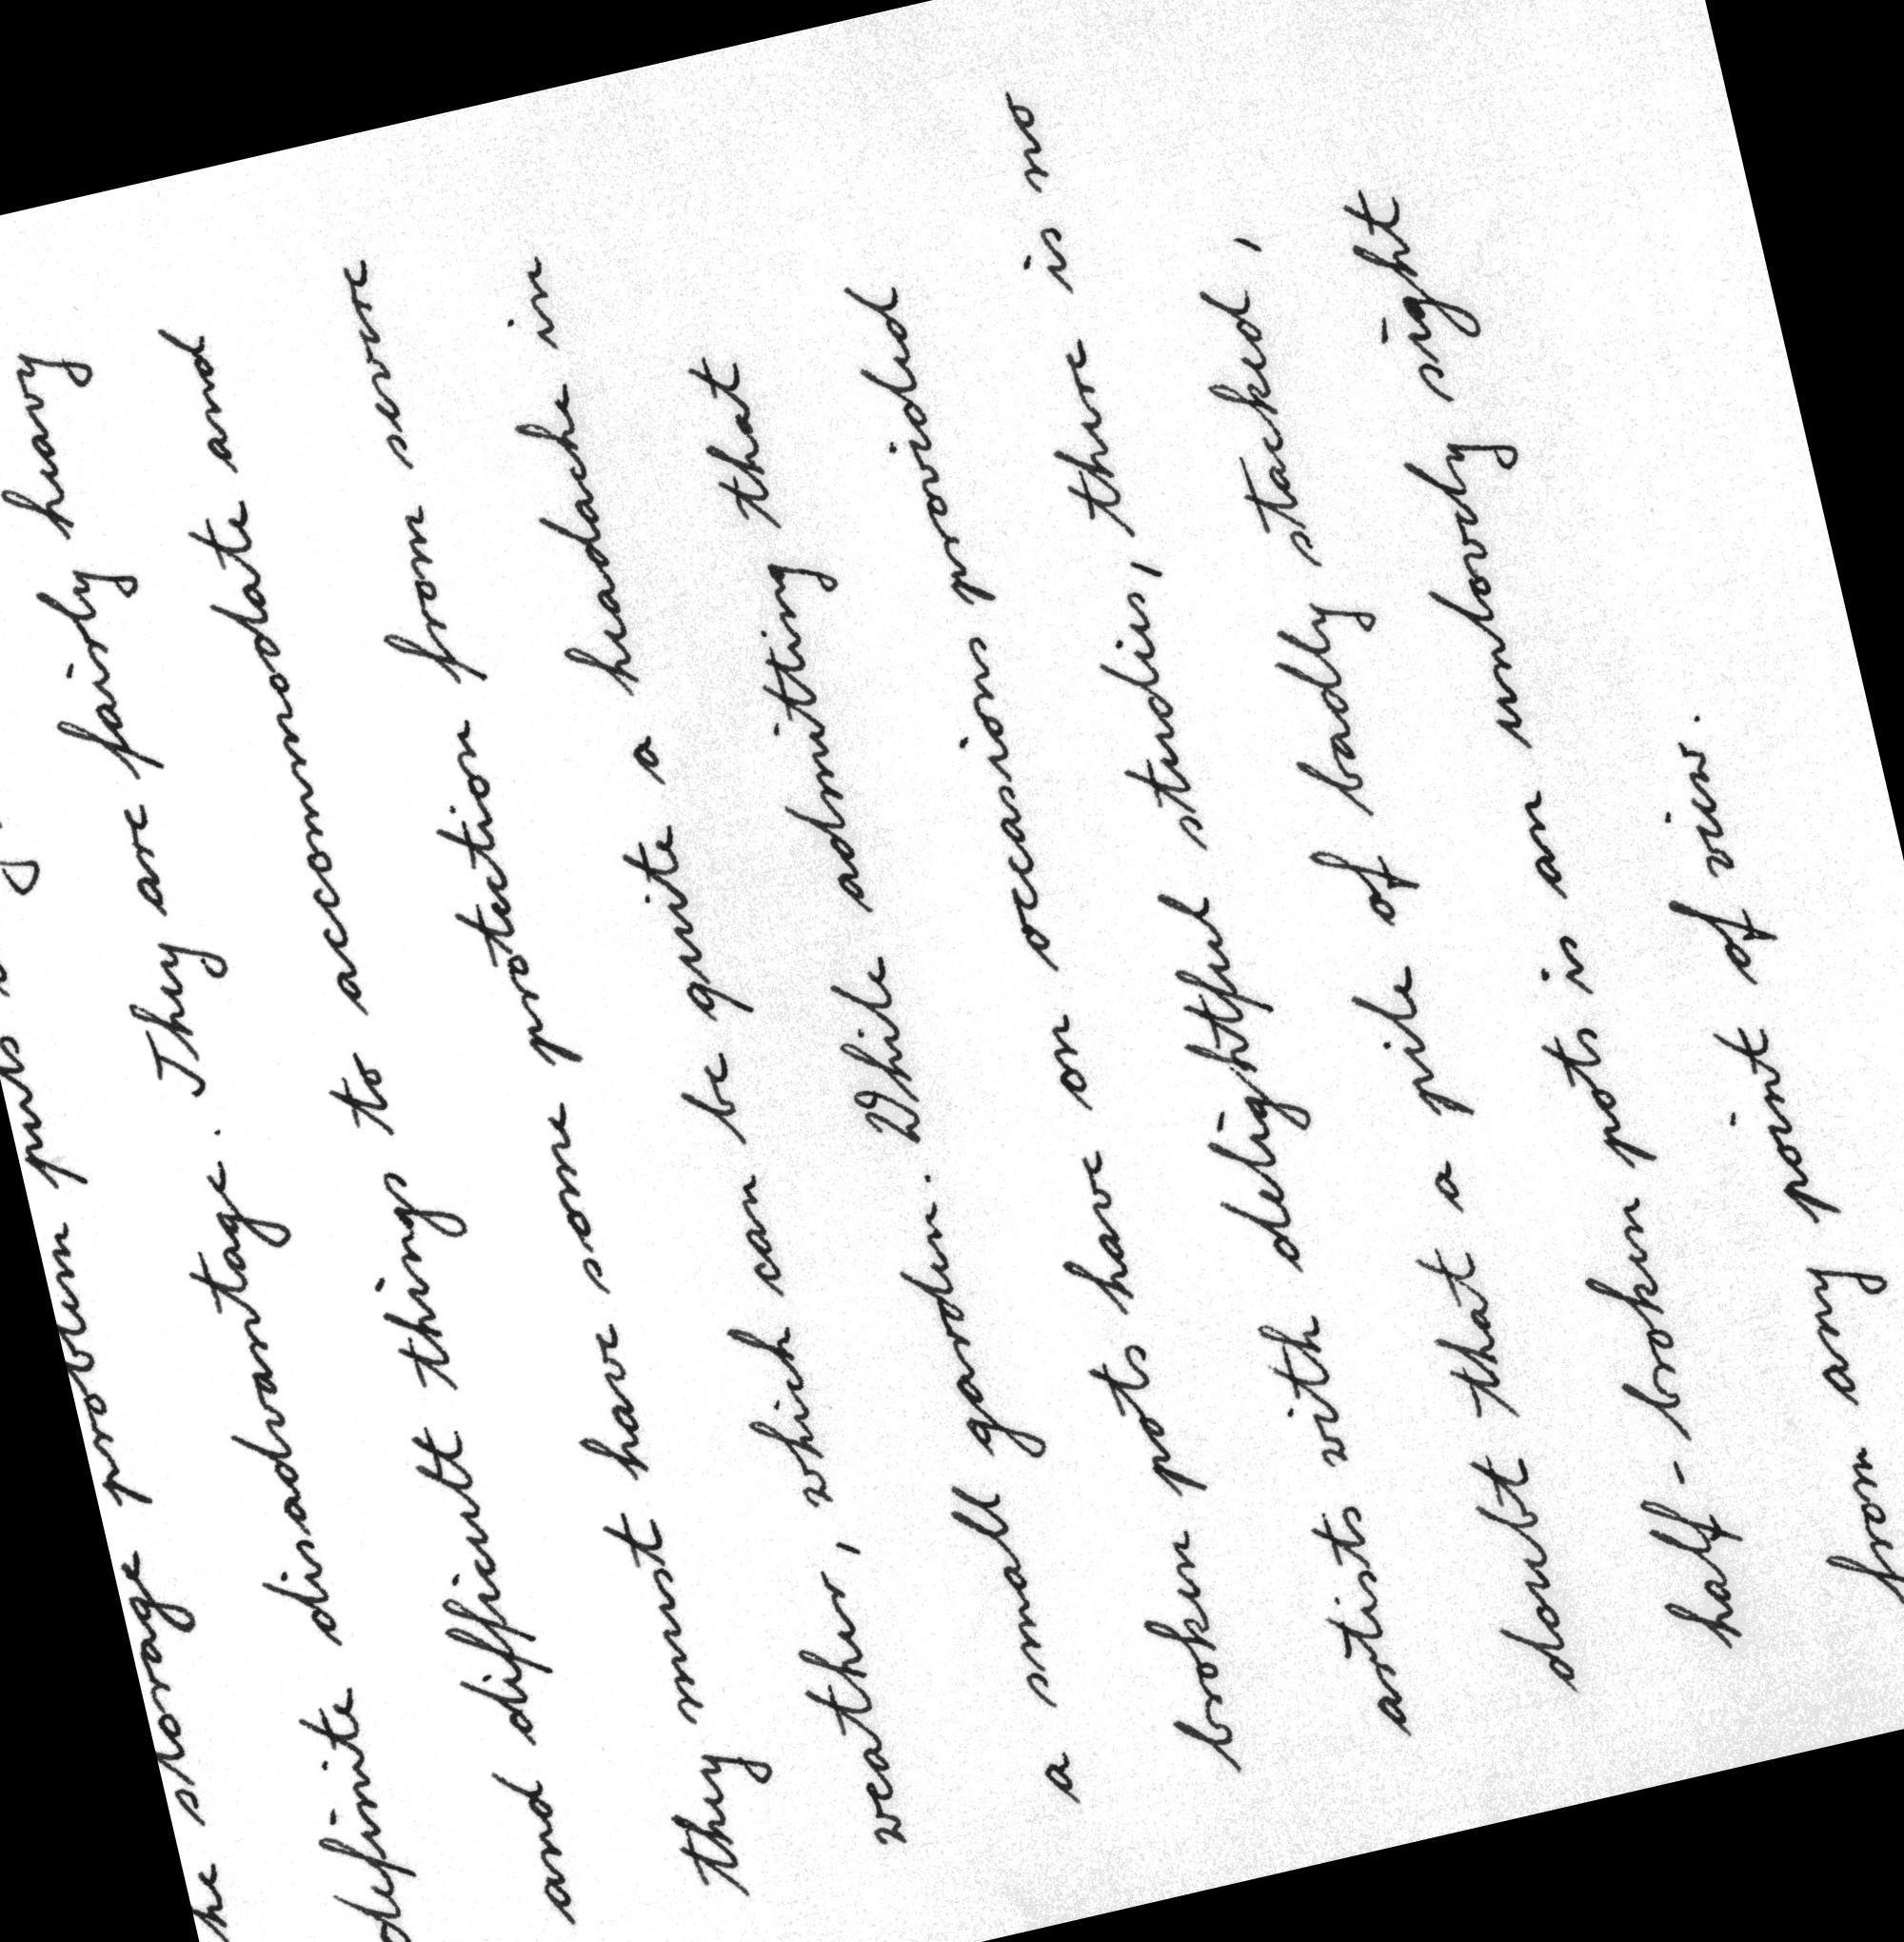 storage problem puts
definite disadvantage. They are fairly heavy
and difficult things to accommodate and
they must have some protection from severe
weather, which can be quite a headache in
a small garden. While admitting that
broken pots have on occasions provided
artists with delightful studies, there is no
doubt that a pile of badly stacked,
half-broken pots is an unlovely sight
from any point of view.